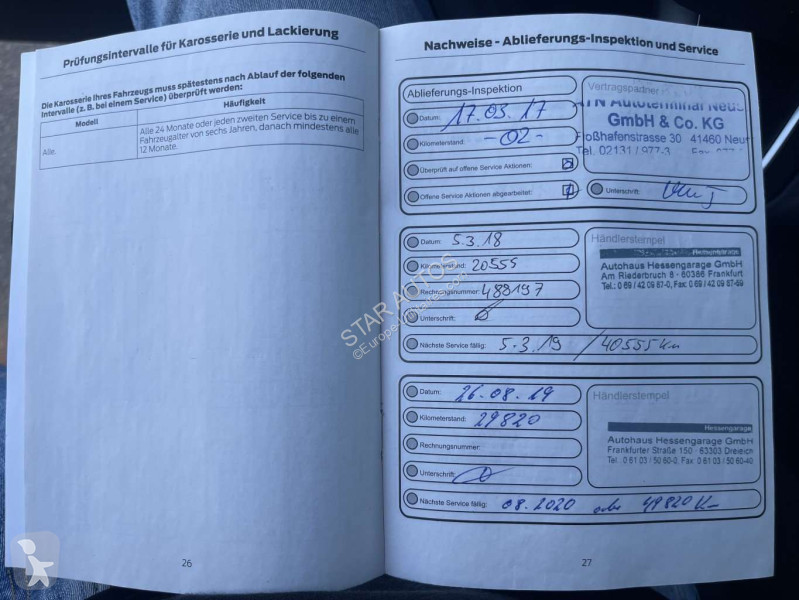 Prüfungsintervalle für Karosserie und Lackierung
Die Karosserie Ihres Fahrzeugs muss spätestens nach Ablauf der folgenden
Intervalle (z. B. bei einem Service) überprüft werden:
Modell
Häufigkeit
Alle.
Alle 24 Monate oder jeden zweiten Service bis zu einem
Fahrzeugalter von sechs Jahren, danach mindestens alle
12 Monate.
26
Nachweise - Ablieferungs-Inspektion und Service
Ablieferungs-Inspektion
Datum: 17.03.17
Kilometerstand: -02-
Überprüft auf offene Service Aktionen:
Offene Service Aktionen abgearbeitet:
Vertragspartner
Autoterminal Neuss
GmbH & Co. KG
Floßhafenstrasse 30 41460 Neu
Tel. 02131 / 977-3
Unterschrift:
Datum: 5.3.18
Kilometerstand: 20555
Rechnungsnummer: 488197
Unterschrift:
Nächste Service fällig: 5-3.19 / 40555 Km
Händlerstempel
Hessengarage
Autohaus Hessengarage GmbH
Am Riederbruch 8 - 60386 Frankfurt
Tel.: 0 69 / 42 09 87-0, Fax: 0 69 / 42 09 87-69
Datum: 26.08.19
Kilometerstand: 29820
Rechnungsnummer:
Unterschrift:
Nächste Service fällig: 08.2020 oder 49820 Km
Händlerstempel
Hessengarage
Autohaus Hessengarage GmbH
Frankfurter Straße 150 - 63303 Dreieich
Tel. 0 61 03 / 50 60-0, Fax 0 61 03 / 50 60-40
27
STAR AUTOS
©Europe-Voitures.com